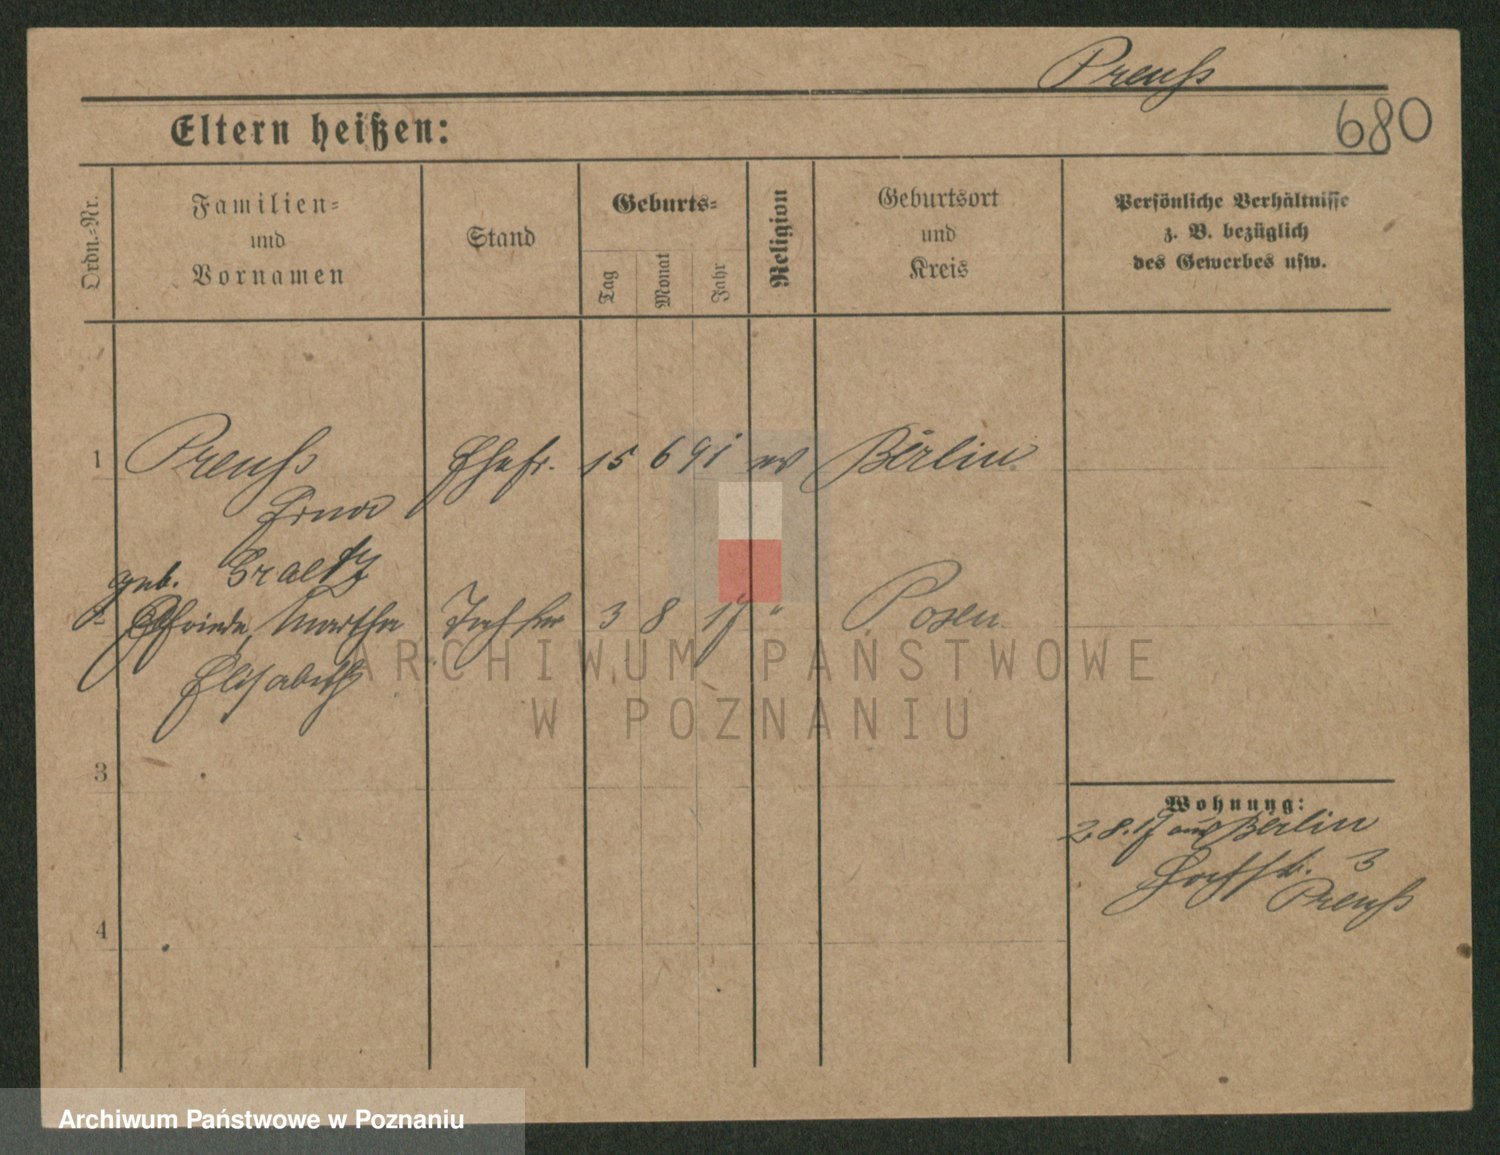 Preuß
680
Eltern heißen:
Ordn.-Nr.
Familien-
und
Vornamen
Stand
Geburts-
Tag
Monat
Jahr
Religion
Geburtsort
und
Kreis
Persönliche Verhältnisse
z. B. bezüglich
des Gewerbes usw.
1 Preuß Ehefr. 15 6 91 ev Berlin
Erna
geb. Graetz
2 Elfriede, Martha Tochter 3 8 17 " Posen
Elisabeth
3
4
Wohnung:
2.8.17 aus Berlin
3
Preuß
ARCHIWUM PAŃSTWOWE
W POZNANIU
Archiwum Państwowe w Poznaniu